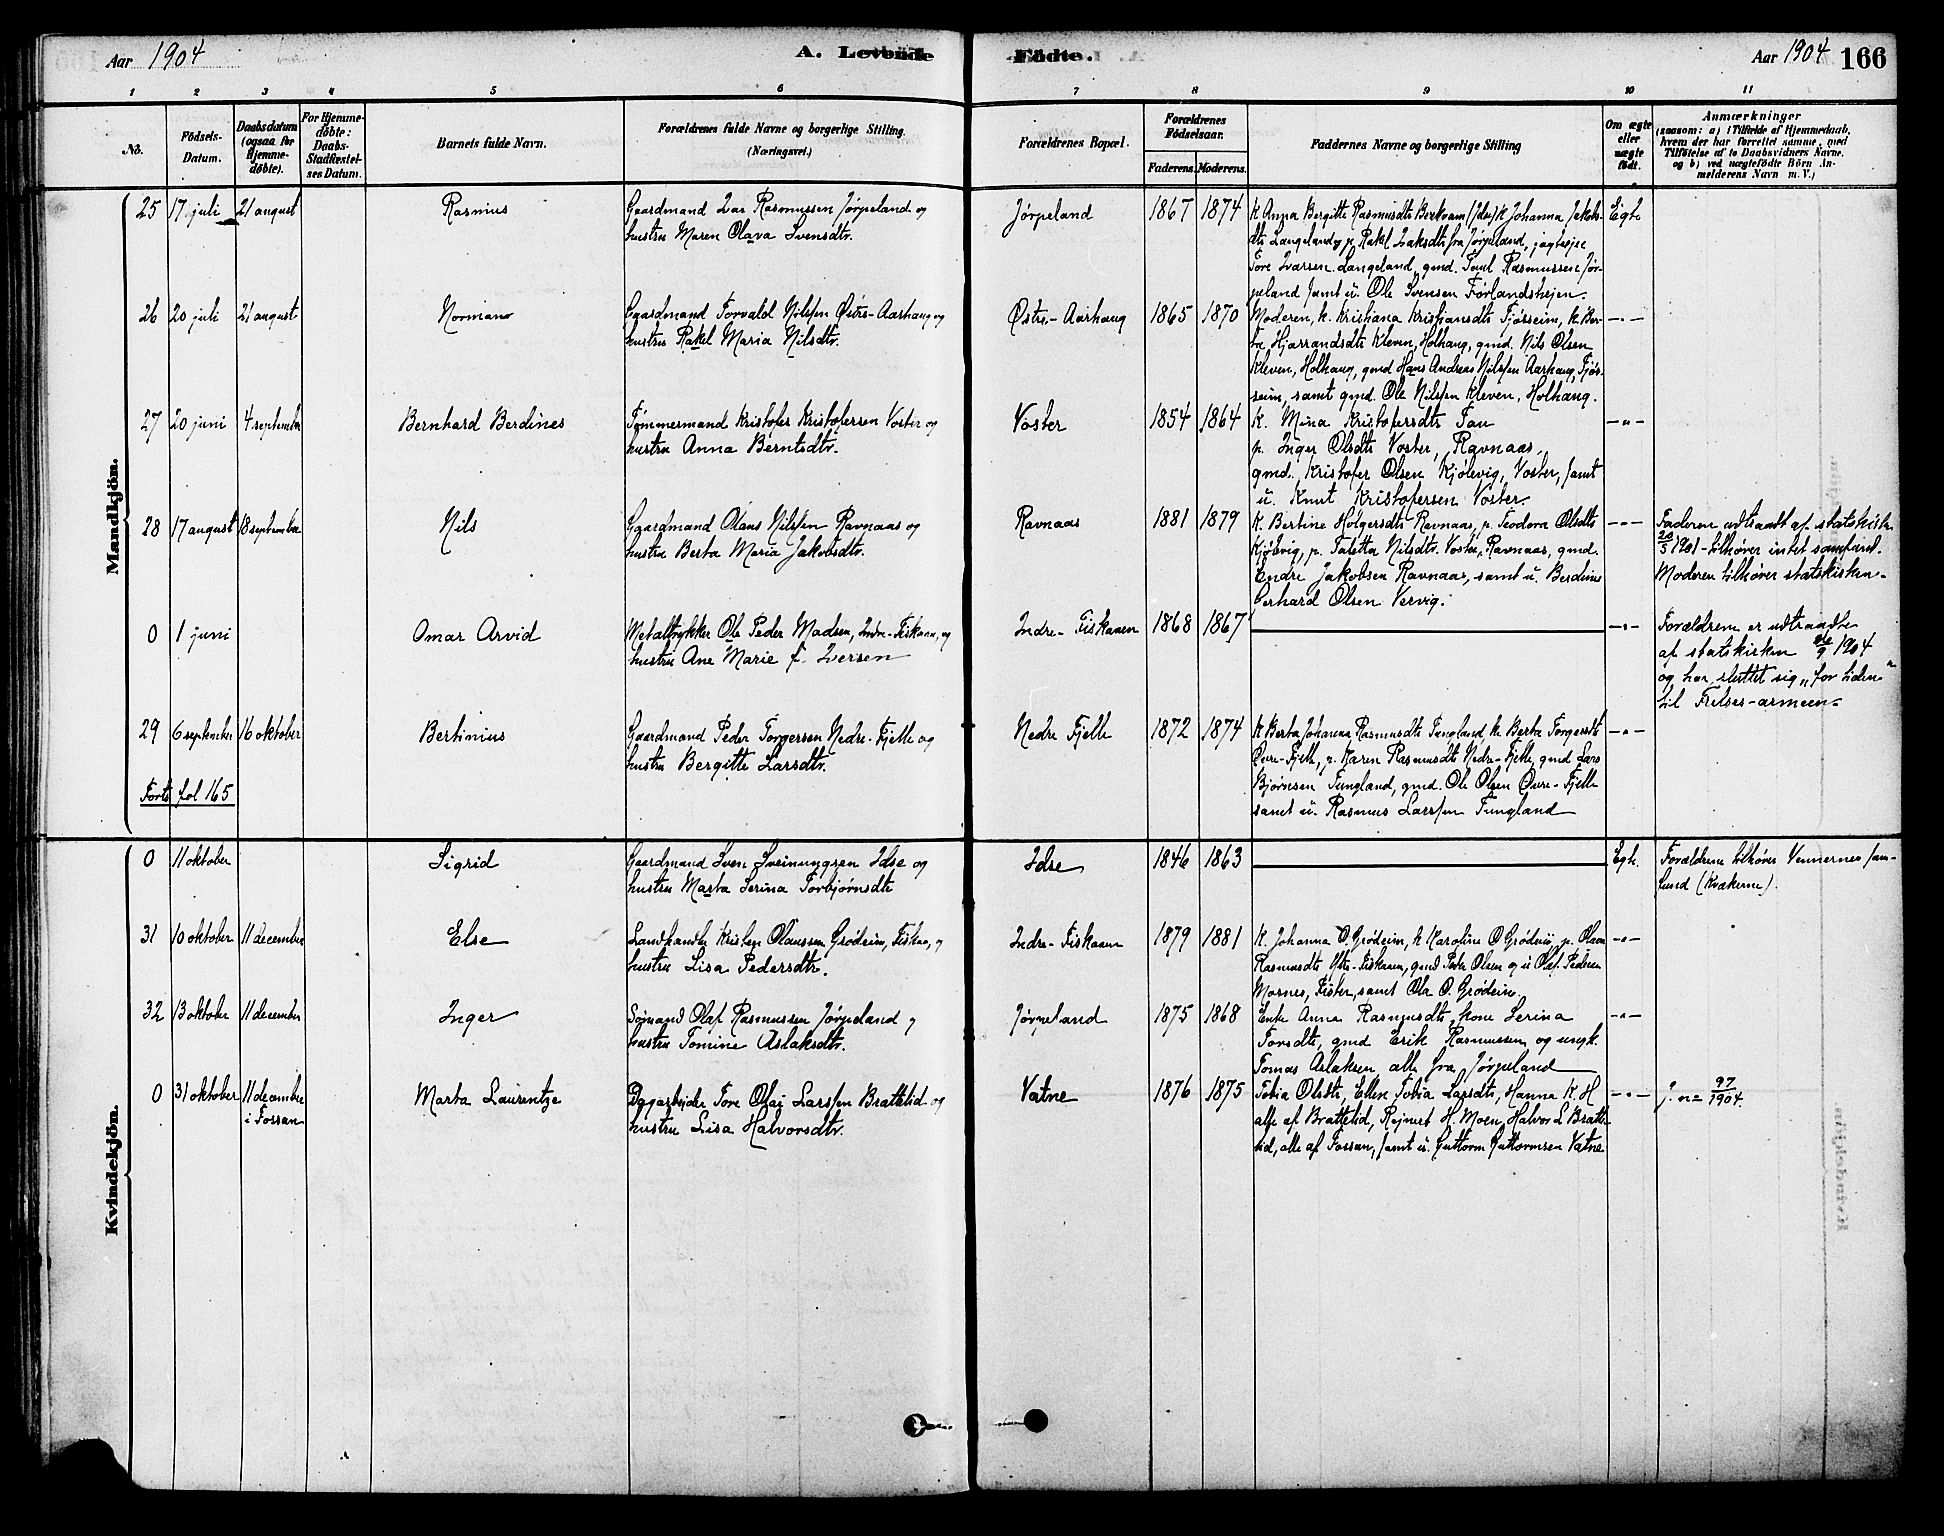 Aar 1904
A. Levende
Födte.
Aar 1904 166
1 2 3 4 5 6 7 8 9 10 11
No.
Födsels-
Datum.
Daabsdatum
(ogsaa for
Hjemme-
døbte).
For Hjemme-
døbte:
Daabs-
Stadfæstel-
ses Datum.
Barnets fulde Navn.
Forældrenes fulde Navne og borgerlige Stilling.
(Næringsvei.)
Forældrenes Bopæl.
Forældrenes
Födselsaar.
Faderens. Moderens.
Faddernes Navne og borgerlige Stilling
Om ægte
eller
uægte
født.
Anmærkninger
(saasom: a) i Tilfælde af Hjemmedaab,
hvem der har forrettet samme, med
Tilföielse af to Daabsvidners Navne,
og b) ved uægtefödte Börn An-
melderens Navn m. V.)
Mandkjön.
25 17 juli 21 august
Rasmus
Gaardmand Lar Rasmussen Jørpeland og
hustru Maren Olava Svensdtr.
Jørpeland
1867 1874
K Anna Bergitte Rasmusdtr Berkvam (Idse) K Johanna Jakobs-
dtr Langeland p. Rakel fra Jørpeland,
Tore Larsen Langeland, gmd. Rasmussen Jør-
peland samt u. Ole Svensen Førlandshejen.
Egte
26 20 juli 21 august
Norman
Gaardmand Torvald Nilssen Østre-Aarhaug og
hustru Rakel Maria Nilsdtr.
Østre-Aarhaug
1865 1870
Moderen, k. Kristiana Kristiansdtr Fjøsseim, k. Ber-
ta Kleven, Holhaug, gmd. Nils Olsen
Kleven, Holhaug, gmd Hans Andreas Nilssen Aarhaug, Fjøs-
seim, samt gmd. Ole Nilssen Kleven, Holhaug.
-"-
27 20 juni 4 september
Bernhard Berdines
Tømmermand Kristofer Kristofersen Voster og
hustru Anna Berntsdtr.
Voster
1854 1864
K. Mina Kristofersdtr Tau
p. Inger Olsdtr Voster, Ravnaas,
gmd. Kristofer Olsen Kjølevig, Voster, samt
u. Knut Kristofersen Voster.
-"-
28 17 august 18 september
Nils
Gaardmand Olaus Nilssen Ravnaas og
hustru Berta Maria Jakobsdtr.
Ravnaas
1881 1879
K. Bertine Holgersdtr Ravnaas, p. Teodora Olsdtr
Kjølevig, p. Taletta Nilsdtr. Voster, Ravnaas, gmd.
Endre Jakobsen Ravnaas, samt u. Berdines
Gerhard Olsen Vervig.
-"-
Faderen udtraadt af statskirken
20/5 1901 - tilhører intet samfund.
Moderen tilhører statskirken.
0 1 juni
Omar Arvid
Metaltrykker Ole Peder Madsen, Indre-Fiskaaen, og
hustru Ane Marie f. Iversen
Indre-Fiskaaen
1868 1867
-"-
Forældrene er udtraadte
af statskirken 1904
og har sluttet sig „for tiden"
til Frelses-armeen.
29 6 september 16 oktober
Bertinius
Gaardmand Peder Torgersen Nedre-Fjelle og
hustru Bergitte Larsdtr.
Nedre Fjelle
1872 1874
K Berta Johanna Rasmusdtr Tungland k. Berta Torgersdtr
Øvre-Fjelle, p. Karen Rasmusdtr Nedre-Fjelle, gmd Lars
Bjørnsen Tungland, gmd. Ole Olsen Øvre-Fjelle
samt u. Rasmus Larssen Tungland
-"-
Forts fol 165
Kvindekjön.
0 11 oktober
Sigrid
Gaardmand Sven Sveinungsen Idse og
hustru Marta Serina Torbjørnsdtr
Idse
1846 1863
Egte.
Forældrene tilhører Vennernes sam-
fund (Kvækerne).
31 10 oktober 11 december
Else
Landhandler Kristen Olaussen Grødeim, Fiskaa, og
hustru Lisa Pedersdtr.
Indre-Fiskaaen
1879 1881
K. Johanna O. Grødeim, k Karoline O Grødeim, p. Olava
Rasmusdtr Ytre-Fiskaaen, gmd Peder Olsen og u Olaf Pedersen
Mosnes, Fister, samt Ola O. Grødeim.
-"-
32 13 oktober 11 december
Inger
Sømand Olaf Rasmussen Jørpeland og
hustru Tomine Aslaksdtr.
Jørpeland
1875 1868
Enke Anna Rasmusdtr, kone Serina
Torsdtr, gmd Erik Rasmussen og ungk.
Tomas Aslaksen alle fra Jørpeland
-"-
0 31 oktober 11 december
i Fossan
Marta Laurentze
Dagarbeider Tore Olai Larssen Brattelid og
hustru Lisa Halvorsdtr.
Vatne
1876 1875
Tobia Olsdtr, Ellen Tobia Larsdtr, Hanna K. H
alle af Brattelid, Rejnert H. Moen, Halvor L Bratte-
lid, alle af Fossan, samt u. Guttorm Guttormsen Vatne
-"-
j. n = 97/1904.